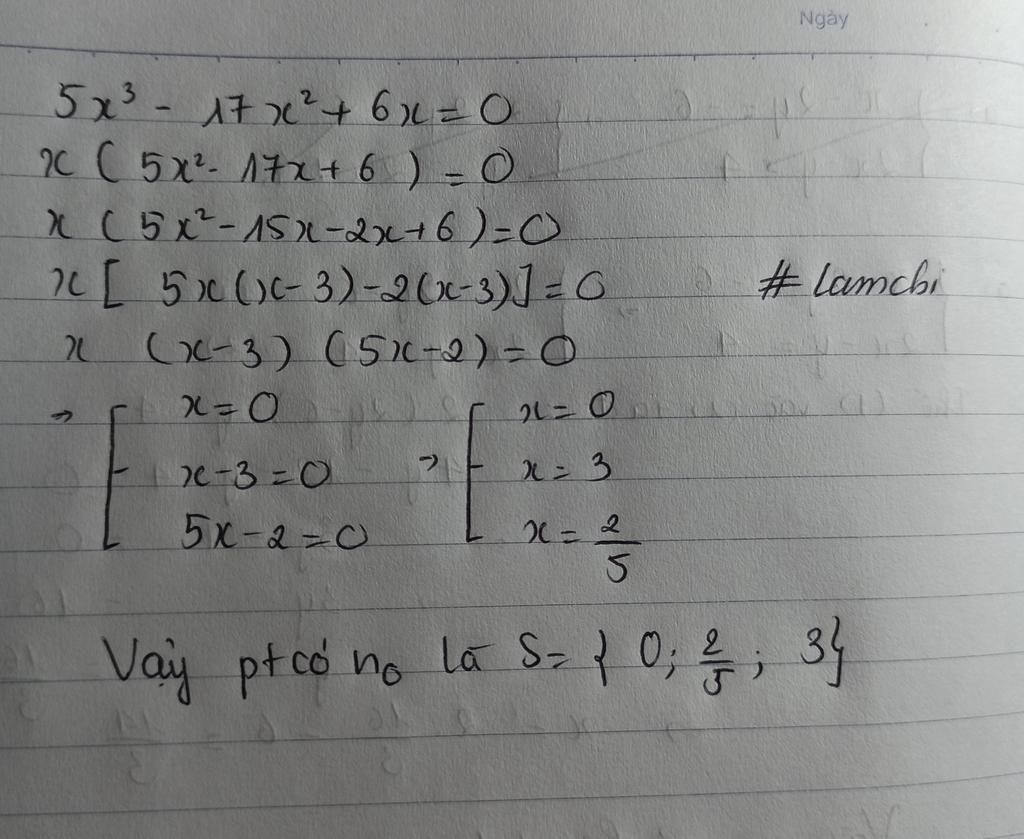 Ngày
5x³ - 17x² + 6x = 0
x ( 5x² - 17x + 6 ) = 0
x ( 5x² - 15x - 2x + 6 ) = 0
x [ 5x(x - 3) - 2(x - 3)] = 0 # lamchi
x (x - 3) (5x - 2) = 0
→ [ x = 0 → [ x = 0
x - 3 = 0 x = 3
5x - 2 = 0 x = 2/5
Vậy pt có no là S = { 0; 2/5; 3}